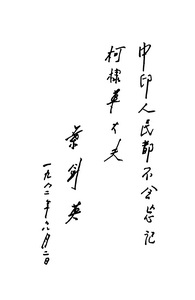 中印人民都不会忘记
柯棣华大夫
叶剑英
一九八二年六月二日